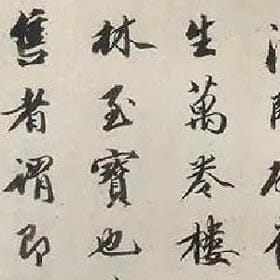 生萬卷樓
林至寶也
售者謂即